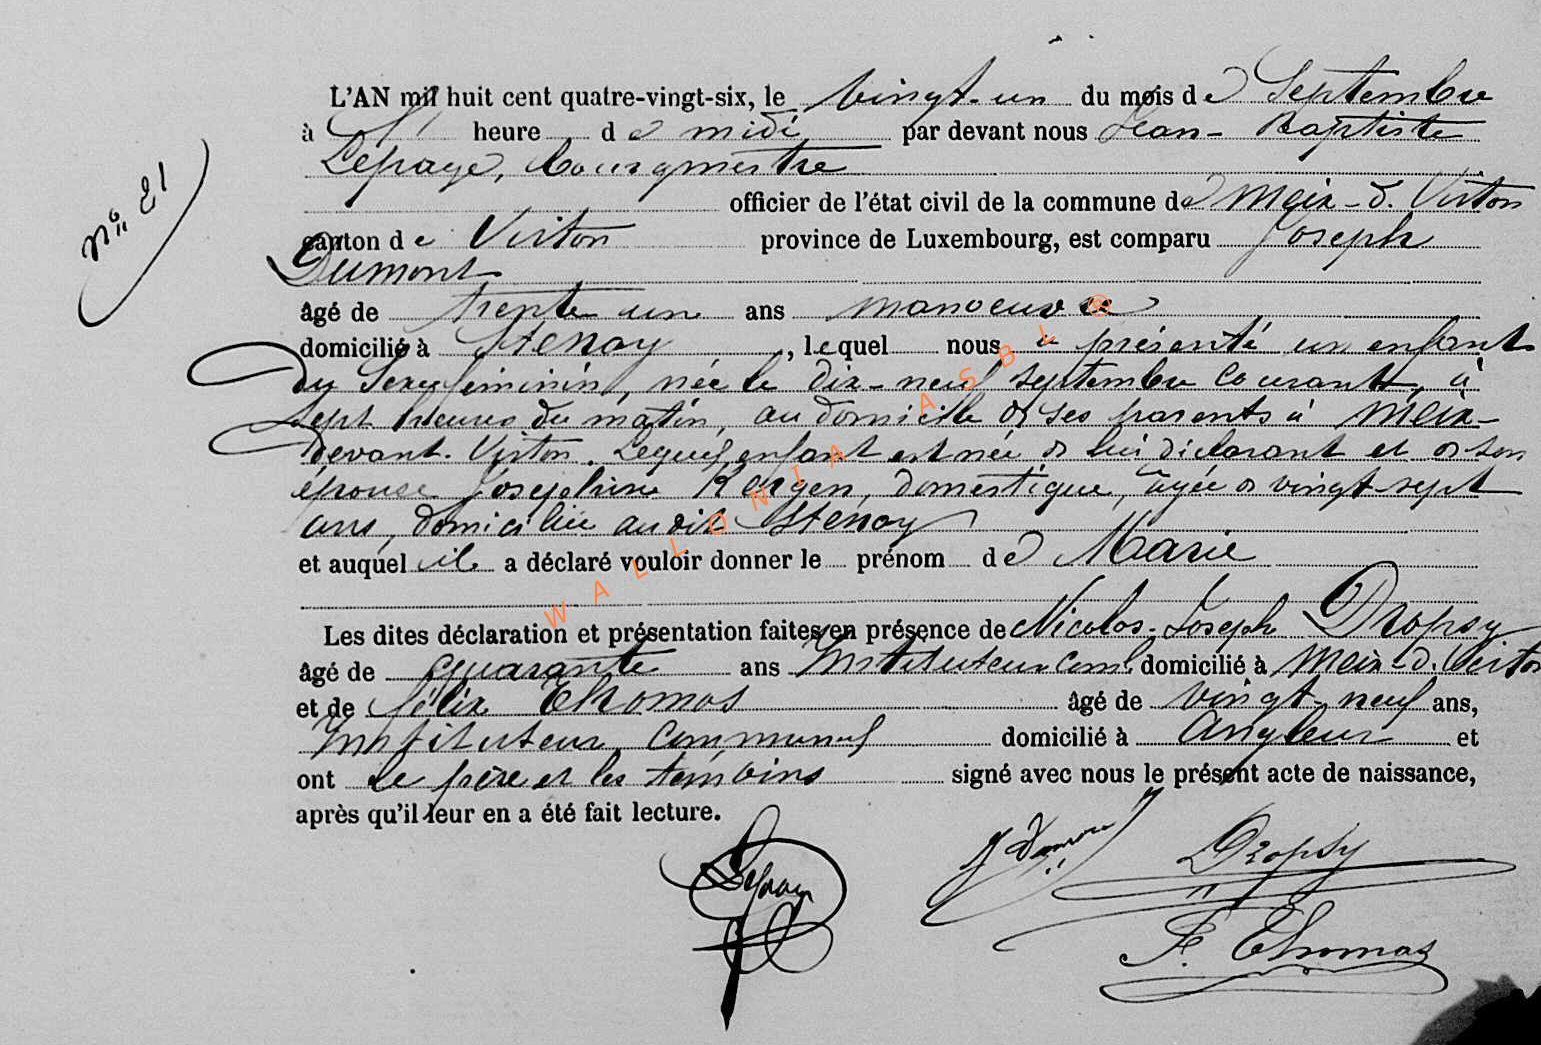 N° 21
L'AN mil huit cent quatre-vingt-six, le vingt-un du mois de Septembre
à heure de midi par devant nous Jean-Baptiste
Lepage, bourgmestre
officier de l'état civil de la commune de Meix-d. Virton
canton de Virton province de Luxembourg, est comparu Joseph
Dumont
âgé de trente un ans manoeuvre
domicilié à Stenay, lequel nous a présenté un enfant
du sexe féminin, née le dix-neuf septembre courant, à
sept heures du matin, au domicile de ses parents à Meix-
devant-Virton. Lequel enfant est née de lui déclarant et de son
épouse Joséphine Kergen, domestique, âgée de vingt-sept
ans, domiciliée audit Stenay
et auquel il a déclaré vouloir donner le prénom de Marie
Les dites déclaration et présentation faites en présence de Nicolas-Joseph Dropsy
âgé de quarante ans Instituteur com. domicilié à Meix-d. Virton
et de Félix Thomas âgé de vingt-neuf ans,
Instituteur communal domicilié à Angleur et
ont le père et les témoins signé avec nous le présent acte de naissance,
après qu'il leur en a été fait lecture.
Lepage J Dumont Dropsy
F. Thomas
WALLONIA ASBL ®